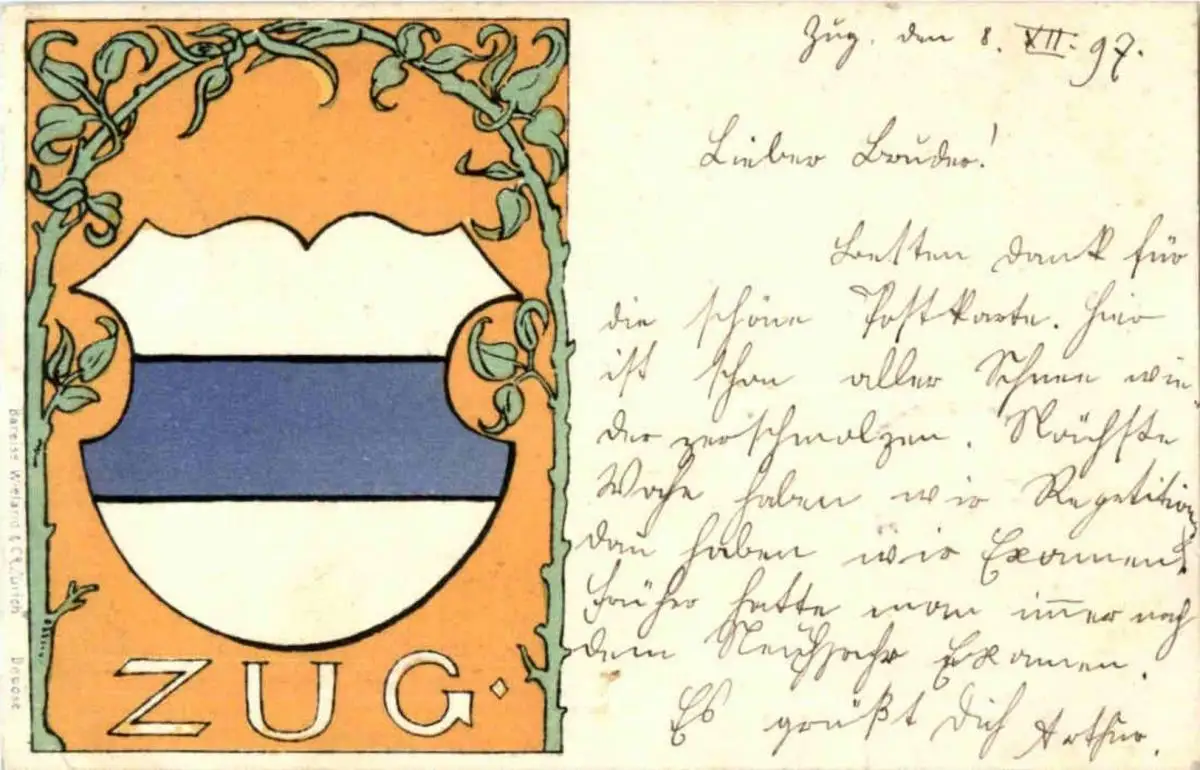 Zug. den 8. XII. 97.
Lieber Bruder!
Besten Dank für
die schöne Postkarte. Hier
ist schon aller Schnee wie-
der zerschmolzen. Nächste
Woche haben wir Repetition,
dan haben wir Examen.
Früher hatte man immer nach
dem Neujahr Examen.
Es grüßt Dich Arthur.
ZUG
Bareiss Wieland & Co. Zürich